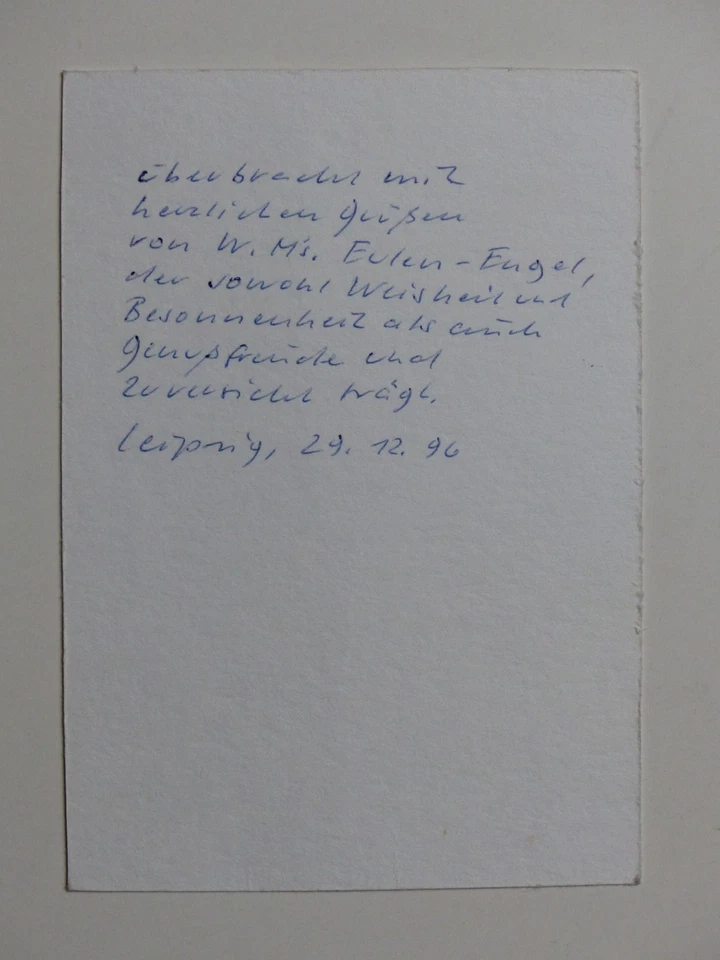 überbracht mit
herzlichen Grüßen
von W. M's. Eulen-Engel,
der sowohl Weisheit und
Besonnenheit als auch
Genußfreude und
Zuversicht trägt.
Leipzig, 29. 12. 96